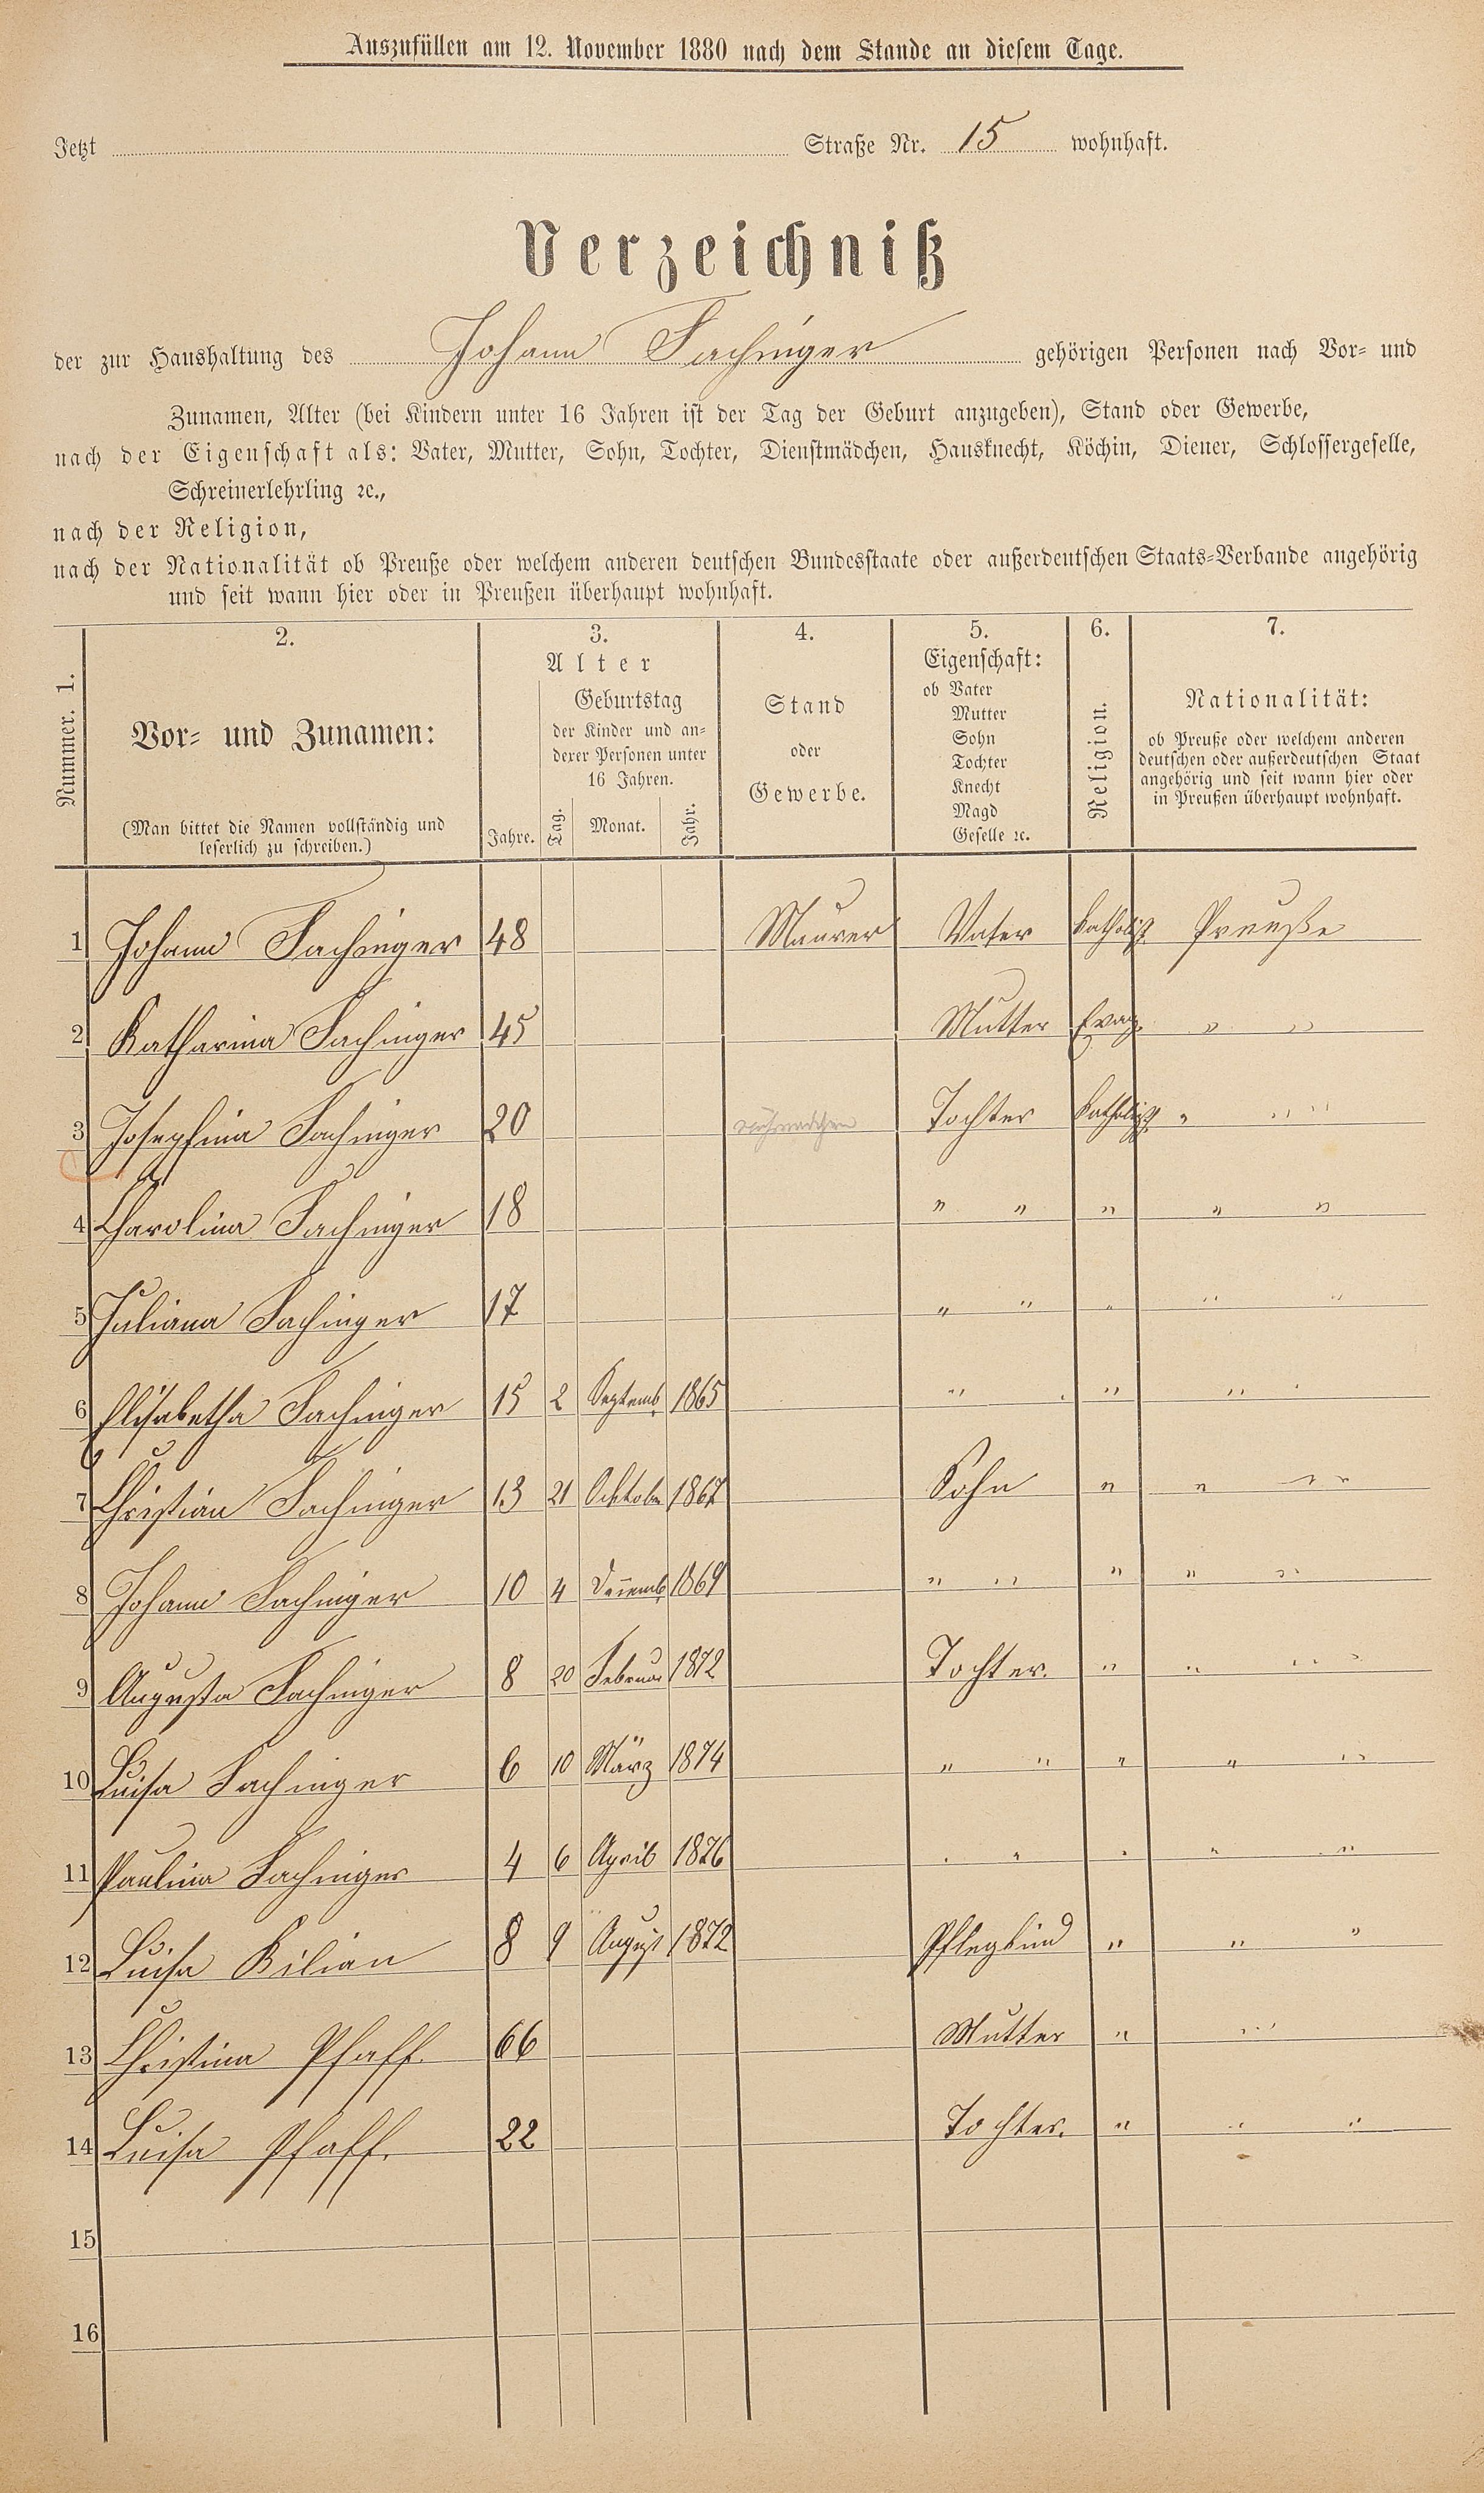 Auszufüllen am 12. November 1880 nach dem Stande an diesem Tage.
Jetzt Straße Nr. 15 wohnhaft.
Verzeichniß
der zur Haushaltung des Johann Fachinger gehörigen Personen nach Vor- und
Zunamen, Alter (bei Kindern unter 16 Jahren ist der Tag der Geburt anzugeben), Stand oder Gewerbe,
nach der Eigenschaft als: Vater, Mutter, Sohn, Tochter, Dienstmädchen, Hausknecht, Köchin, Diener, Schlossergeselle,
Schreinerlehrling ꝛc.,
nach der Religion,
nach der Nationalität ob Preuße oder welchem anderen deutschen Bundesstaate oder außerdeutschen Staats-Verbande angehörig
und seit wann hier oder in Preußen überhaupt wohnhaft.
Nummer. 1.
2.
Vor- und Zunamen:
(Man bittet die Namen vollständig und
leserlich zu schreiben.)
3.
Alter
Jahre.
Geburtstag
der Kinder und an-
derer Personen unter
16 Jahren.
Tag. Monat. Jahr.
4.
Stand
oder
Gewerbe.
5.
Eigenschaft:
ob Vater
Mutter
Sohn
Tochter
Knecht
Magd
Geselle ꝛc.
6.
Religion.
7.
Nationalität:
ob Preuße oder welchem anderen
deutschen oder außerdeutschen Staat
angehörig und seit wann hier oder
in Preußen überhaupt wohnhaft.
1 Johann Fachinger 48 Maurer Vater Katholist Preuße
2 Katharina Fachinger 45 Mutter Evag. " "
3 Josephina Fachinger 20 Nähmädchen Tochter Katholist " "
4 Charolina Fachinger 18 " " " " "
5 Juliana Fachinger 17 " " " " "
6 Elisabetha Fachinger 15 2 Septemb. 1865 " " " " "
7 Christian Fachinger 13 21 Ocktober 1867 Sohn " " "
8 Johann Fachinger 10 4 1869 " " " " "
9 Augusta Fachinger 8 20 Februar 1872 Tochter. " " "
10 Luisa Fachinger 6 10 März 1874 " " " " "
11 Paulina Fachinger 4 6 April 1876 " " " " "
12 Luisa Kilian 8 9 August 1872 Pflegkind " " "
13 Christina Pfaff. 66 Mutter " "
14 Luisa Pfaff. 22 Tochter. " " "
15
16